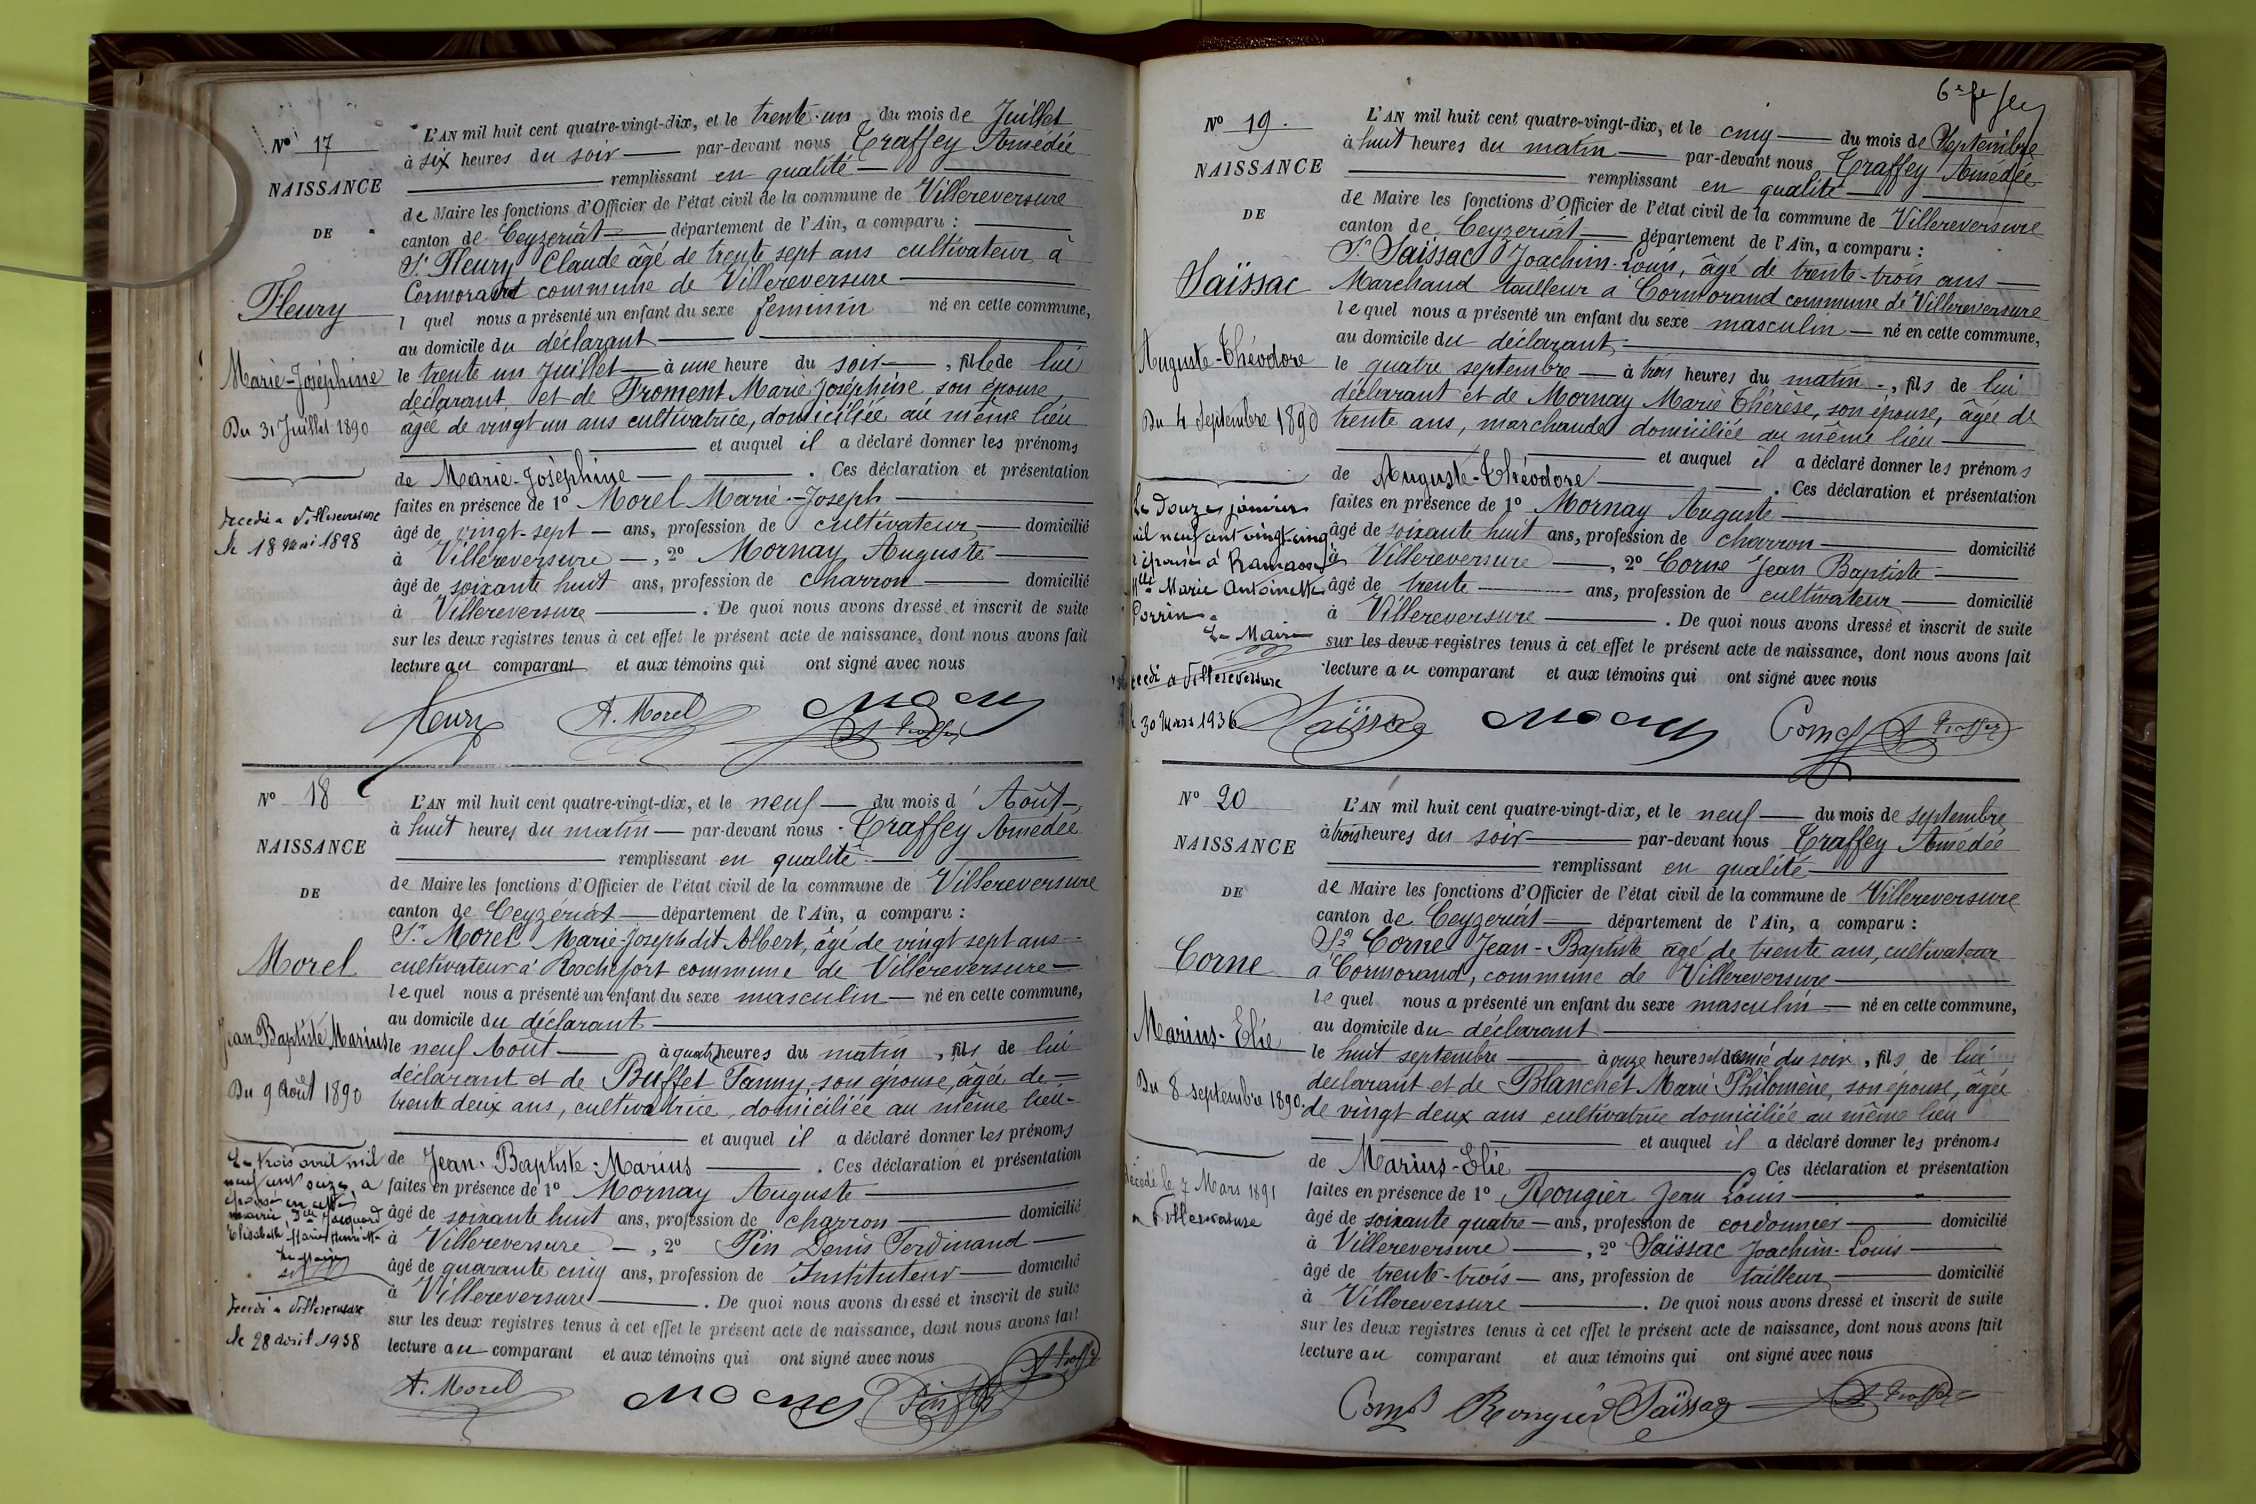 Nº 17
NAISSANCE
DE
Fleury
Marie-Joséphine
Du 31 Juillet 1890
Décédée à Villereversure
le 18 mai 1898
L'AN mil huit cent quatre-vingt-dix, et le trente-un du mois de Juillet
à six heures du soir par-devant nous Traffey Amédée
remplissant en qualité
de Maire les fonctions d'Officier de l'état civil de la commune de Villereversure
canton de Ceyzeriat département de l'Ain, a comparu :
Sr Fleury Claude âgé de trente sept ans cultivateur à
Cormorand commune de Villereversure
l quel nous a présenté un enfant du sexe feminin né en cette commune,
au domicile du déclarant
le trente un Juillet à une heure du soir, fille de lui
déclarant et de Froment Marie Joséphine son épouse
âgée de vingt un ans cultivatrice, domiciliée au même lieu
et auquel il a déclaré donner les prénoms
de Marie-Joséphine. Ces déclaration et présentation
faites en présence de 1º Morel Marie-Joseph
âgé de vingt-sept ans, profession de cultivateur domicilié
à Villereversure, 2º Mornay Auguste
âgé de soixante huit ans, profession de charron domicilié
à Villereversure. De quoi nous avons dressé et inscrit de suite
sur les deux registres tenus à cet effet le présent acte de naissance, dont nous avons fait
lecture au comparant et aux témoins qui ont signé avec nous
Fleury A. Morel Mornay A. Traffey
Nº 18
NAISSANCE
DE
Morel
Jean Baptiste Marius
Du 9 Août 1890
Le trois avril mil
neuf cent onze a
épousé en cette
mairie, Dlle Jacquand
Elisabeth Marie Henriette
Le Maire
Décédé à Villereversure
le 28 avril 1958
L'AN mil huit cent quatre-vingt-dix, et le neuf du mois d'Août
à huit heures du matin par-devant nous Traffey Amédée
remplissant en qualité
de Maire les fonctions d'Officier de l'état civil de la commune de Villereversure
canton de Ceyzériat département de l'Ain, a comparu :
Sr Morel Marie-Joseph dit Albert, âgé de vingt sept ans
cultivateur à Rochefort commune de Villereversure
lequel nous a présenté un enfant du sexe masculin né en cette commune,
au domicile du déclarant
le neuf Août à quatre heures du matin, fils de lui
déclarant et de Buffet Fanny, son épouse, âgée de
trente deux ans, cultivatrice, domiciliée au même lieu
et auquel il a déclaré donner les prénoms
de Jean-Baptiste-Marius. Ces déclaration et présentation
faites en présence de 1º Mornay Auguste
âgé de soixante huit ans, profession de charron domicilié
à Villereversure, 2º Pin Denis Ferdinand
âgé de quarante cinq ans, profession de Instituteur domicilié
à Villereversure. De quoi nous avons dressé et inscrit de suite
sur les deux registres tenus à cet effet le présent acte de naissance, dont nous avons fait
lecture au comparant et aux témoins qui ont signé avec nous
A. Morel Mornay Pin A. Traffey
Nº 19
NAISSANCE
DE
Saïssac
Auguste-Théodore
Du 4 Septembre 1890
Le douze janvier
mil neuf cent vingt-cinq
a épousé à Ramasse
Mlle Marie Antoinette
Perrin.
Le Maire
Décédé à Villereversure
le 30 Mars 1936
L'AN mil huit cent quatre-vingt-dix, et le cinq du mois de Septembre
à huit heures du matin par-devant nous Traffey Amédée
remplissant en qualité
de Maire les fonctions d'Officier de l'état civil de la commune de Villereversure
canton de Ceyzeriat département de l'Ain, a comparu :
Sr Saïssac Joachim-Louis, âgé de trente-trois ans
Marchand tailleur à Cormorand commune de Villereversure
lequel nous a présenté un enfant du sexe masculin né en cette commune,
au domicile du déclarant
le quatre septembre à trois heures du matin, fils de lui
déclarant et de Mornay Marie Thérèse, son épouse, âgée de
trente ans, marchande domiciliée au même lieu
et auquel il a déclaré donner les prénoms
de Auguste-Théodore. Ces déclaration et présentation
faites en présence de 1º Mornay Auguste
âgé de soixante huit ans, profession de charron domicilié
à Villereversure, 2º Corne Jean Baptiste
âgé de trente ans, profession de cultivateur domicilié
à Villereversure. De quoi nous avons dressé et inscrit de suite
sur les deux registres tenus à cet effet le présent acte de naissance, dont nous avons fait
lecture au comparant et aux témoins qui ont signé avec nous
Saïssac Mornay Corne A. Traffey
Nº 20
NAISSANCE
DE
Corne
Marius-Elie
Du 8 septembre 1890.
Décédé le 7 Mars 1891
à Villereversure
L'AN mil huit cent quatre-vingt-dix, et le neuf du mois de septembre
à trois heures du soir par-devant nous Traffey Amédée
remplissant en qualité
de Maire les fonctions d'Officier de l'état civil de la commune de Villereversure
canton de Ceyzeriat département de l'Ain, a comparu :
Sr Corne Jean-Baptiste âgé de trente ans, cultivateur
à Cormorand, commune de Villereversure
lequel nous a présenté un enfant du sexe masculin né en cette commune,
au domicile du déclarant
le huit septembre à onze heures et demie du soir, fils de lui
déclarant et de Blanchet Marie Philomène, son épouse, âgée
de vingt deux ans cultivatrice domiciliée au même lieu
et auquel il a déclaré donner les prénoms
de Marius-Elie Ces déclaration et présentation
faites en présence de 1º Rougier Jean Louis
âgé de soixante quatre ans, profession de cordonnier domicilié
à Villereversure, 2º Saïssac Joachim-Louis
âgé de trente-trois ans, profession de tailleur domicilié
à Villereversure. De quoi nous avons dressé et inscrit de suite
sur les deux registres tenus à cet effet le présent acte de naissance, dont nous avons fait
lecture au comparant et aux témoins qui ont signé avec nous
Corne Rougier Saïssac A. Traffey